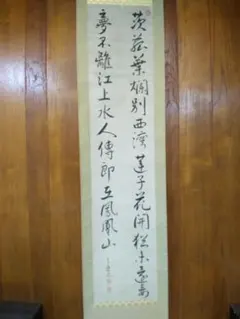 茨菰葉爛別西湾蓮子花開猶未還妾
夢不離江上水人傳郎在鳳凰山